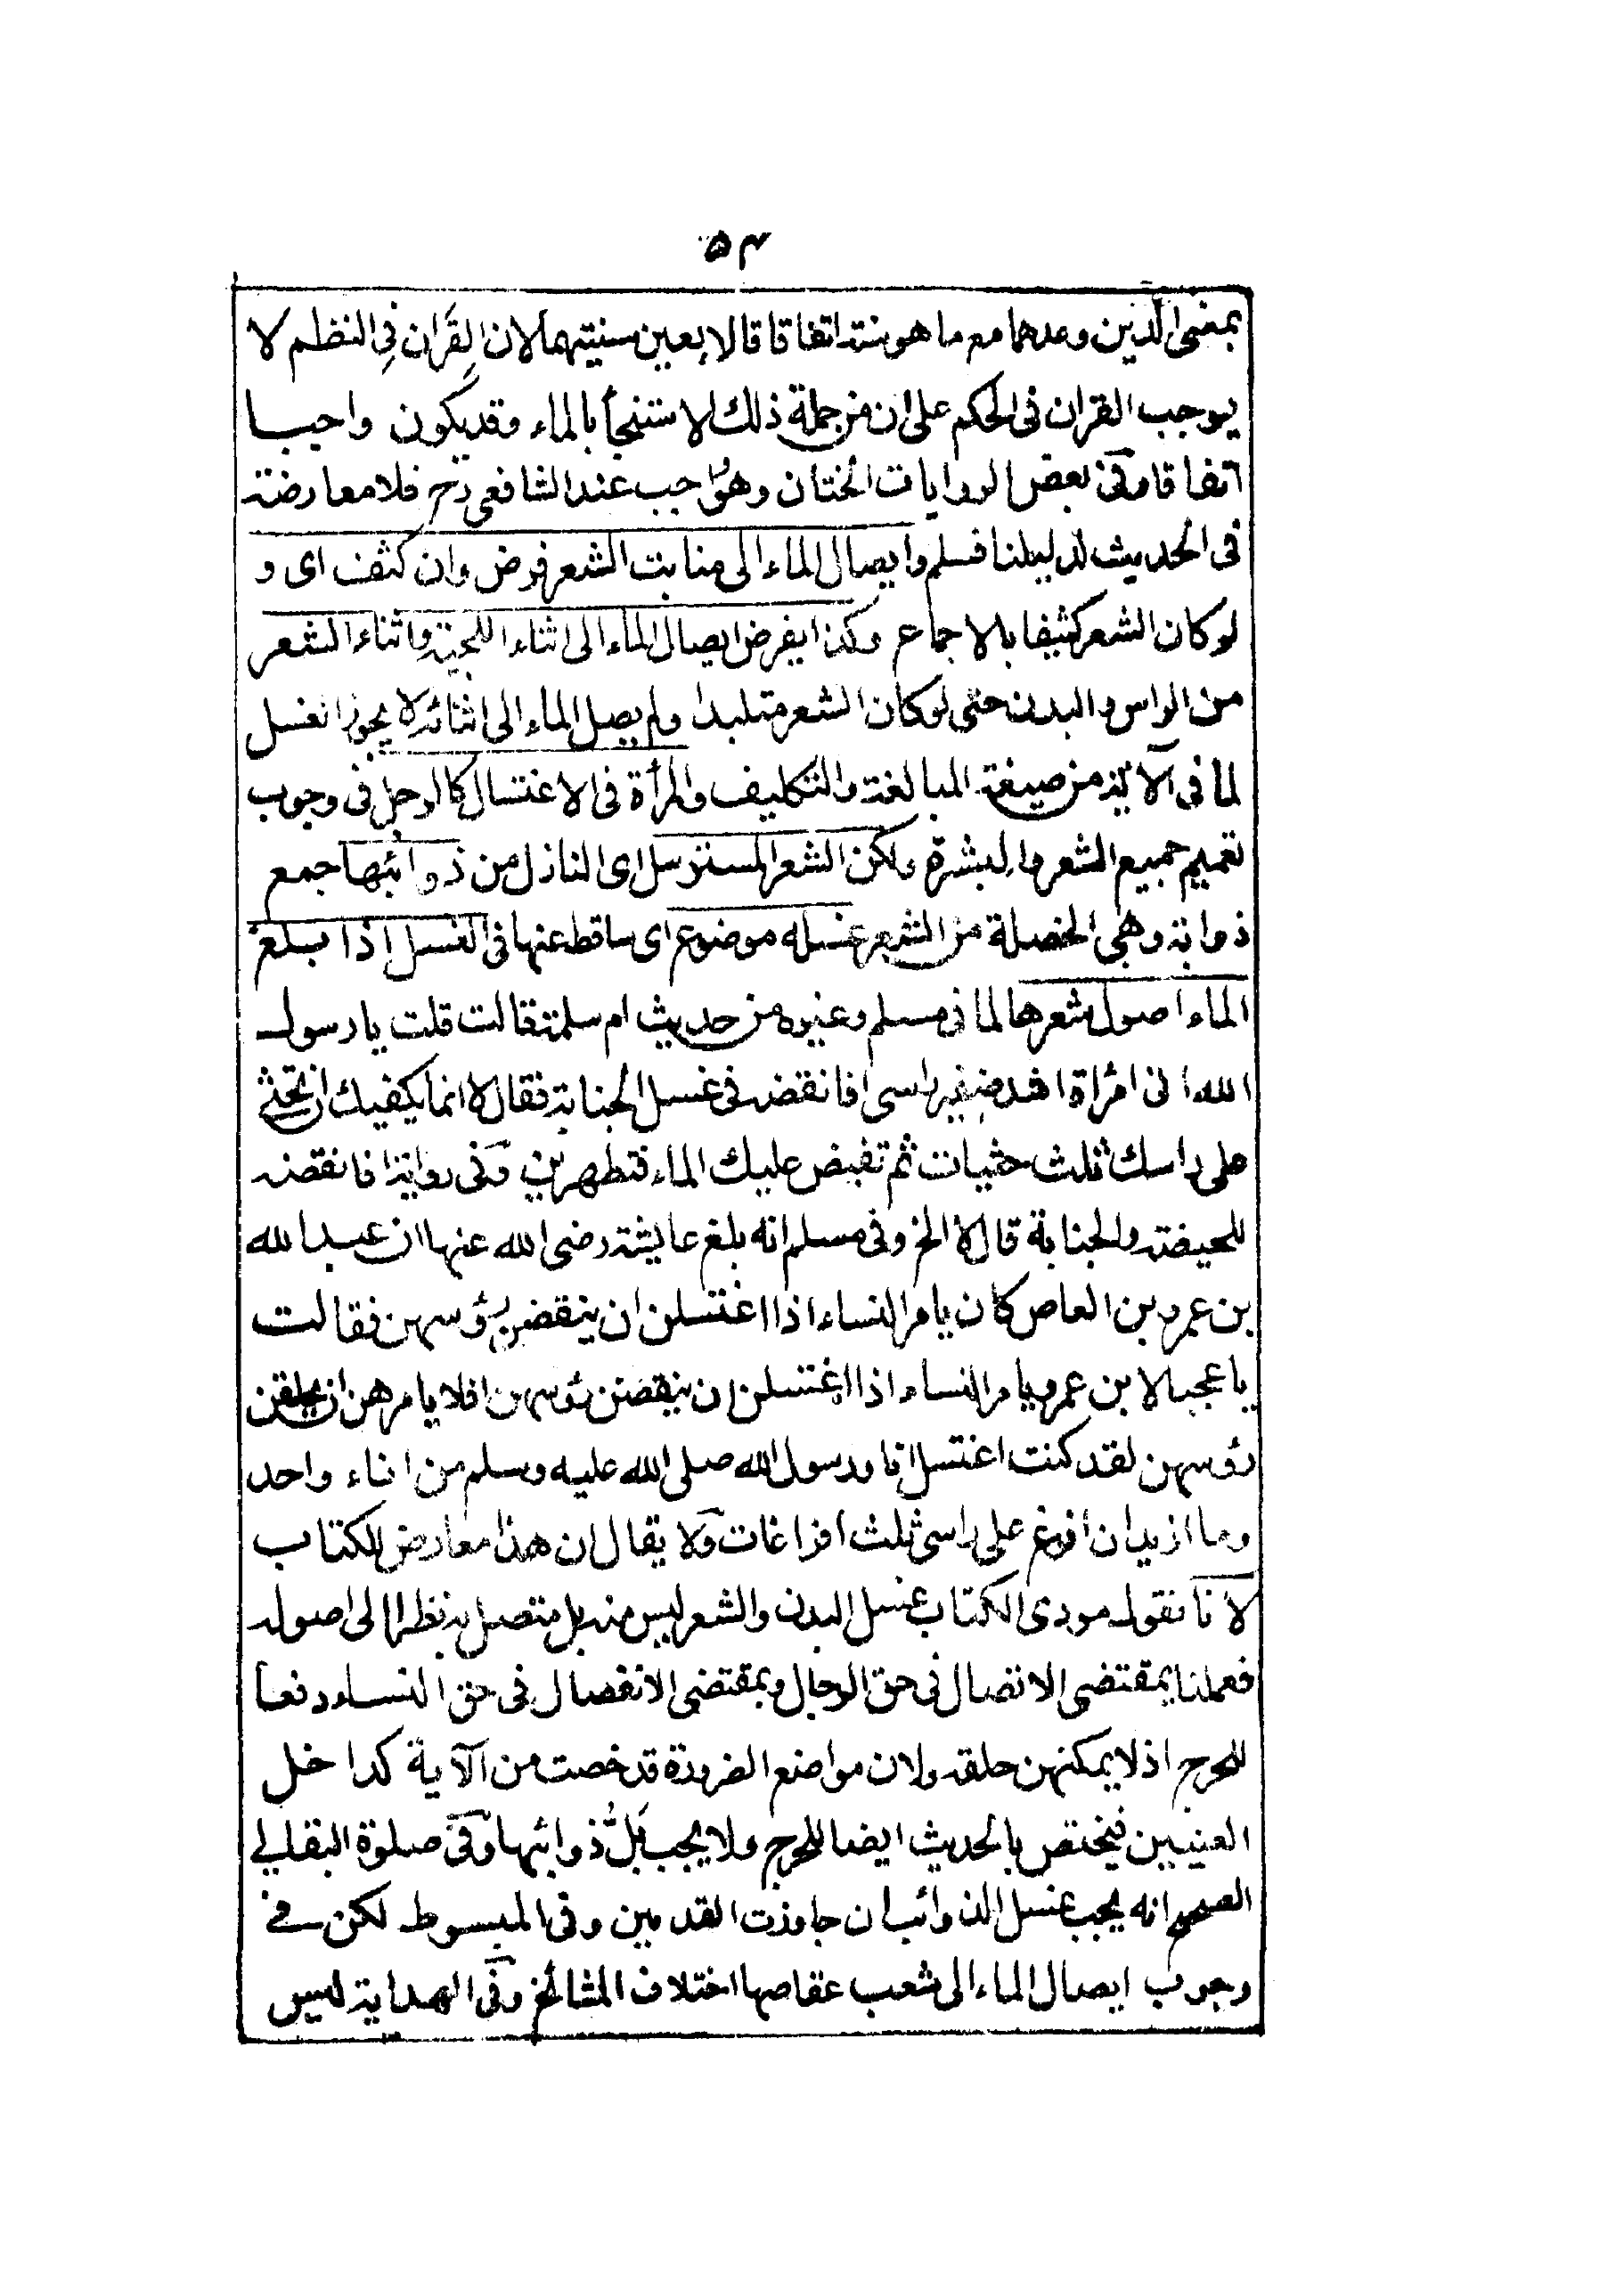 ۵۴
بمعنى الدين وعدهما مع ما هو سنة اتفاقا قالا بعين سنيتهما لان القِران فى النظم لا
يوجب القران فى الحكم على ان من جملة ذلك الاستنجأ بالماء وقد يكون واجبا
اتفاقا وفى بعض الروايات الختان وهو واجب عند الشافعى رح فلا معارضة
فى الحديث لدليلنا فسلم وايصال الماء الى منابت الشعر فرض وان كثف اى و
لو كان الشعر كثيفا بالاجماع وكذا يفرض ايصال الماء الى اثناء اللحية واثناء الشعر
من الراس والبدن حتى لو كان الشعر متلبدا ولم يصل الماء الى اثنائه لا يجوز الغسل
لما فى الآية من صيغة المبالغة والتكليف والمرأة فى الاغتسال كالرجل فى وجوب
تعميم جميع الشعر والبشرة ولكن الشعر المسترسل اى النازل من ذوائبها جمع
ذوابة وهى الخصلة من الشعر غسله موضوع اى ساقط عنها فى الغسل اذا بلغ
الماء اصول شعرها لما فى مسلم وغيره من حديث ام سلمة قالت قلت يا رسول
الله انى امرٔاة اشد ضفير راسى افانقضه فى غسل الجنابة فقال لا انما يكفيك ان تحثى
على راسك ثلث حثيات ثم تفيض عليك الماء فتطهرين وفى رواية افانقضه
للحيضة والجنابة قال لا الخ وفى مسلم انه بلغ عايشة رضى الله عنها ان عبد الله
بن عمرو بن العاص كان يامر النساء اذا اغتسلن ان ينقضن رؤسهن فقالت
يا عجبا لابن عمرو يامر النساء اذا اغتسلن ان ينقضن رؤسهن افلا يامرهن ان يحلقن
رؤسهن لقد كنت اغتسل انا ورسول الله صلى الله عليه وسلم من اناء واحد
وما ازيد ان افرغ على راسى ثلث افراغات ولا يقال ان هذا معارض للكتاب
لانا نقول مودى الكتاب غسل البدن والشعر ليس منه بل متصل به نظرا الى اصوله
فعملنا بمقتضى الاتصال فى حق الرجال وبمقتضى الانفصال فى حق النساء دفعا
للحرج اذ لا يمكنهن حلقه ولان مواضع الضرورة قد خصت من الآية كداخل
العينين فيختص بالحديث ايضا للحرج ولا يجب بَلُّ ذوائبها وفى صلوة البقالي
الصحيح انه يجب غسل الذوائب ان جاوزت القدمين وفى المبسوط لكن فى
وجوب ايصال الماء الى شعب عقاصها اختلاف المشائخ وفى الهداية ليس